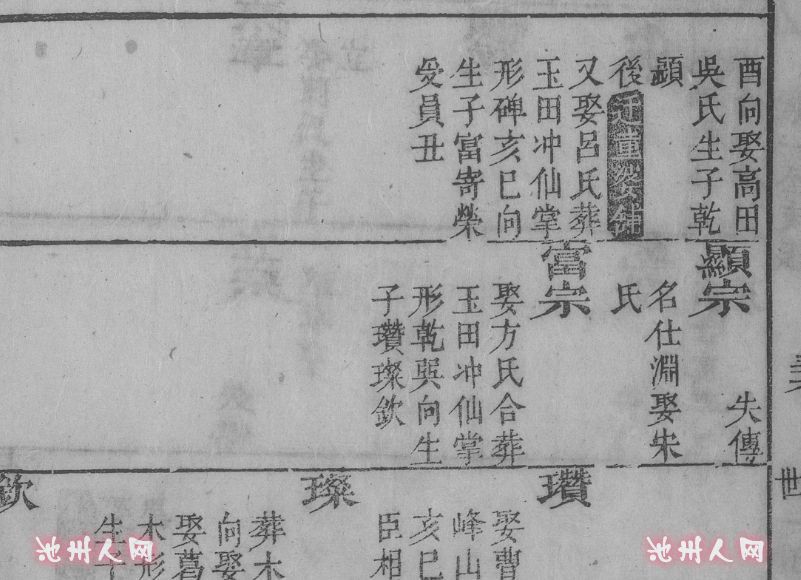 酉向娶高田
吳氏生子乾
顯
後
又娶呂氏葬
玉田冲仙掌
形碑亥巳向
生子富寄榮
受員丑
顯宗
失傳
名仕淵娶朱
氏
富宗
娶方氏合葬
玉田冲仙掌
形乾巽向生
子瓚璨欽
世
瓚
娶曹
峰山
亥巳
臣相
璨
葬木
向娶
娶葛
木形
生子
欽
池州人网
池州人网